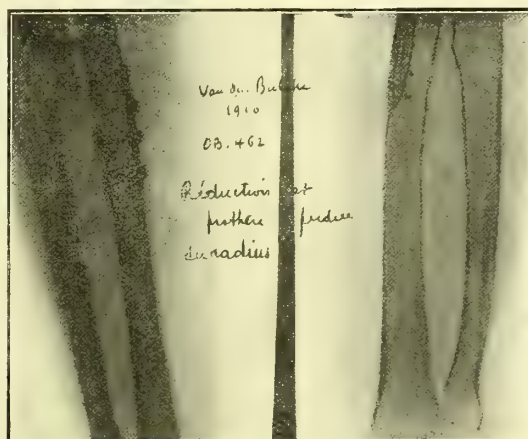 Van de
1910
OB. 462
Réduction et
prothèse perdue
du radius